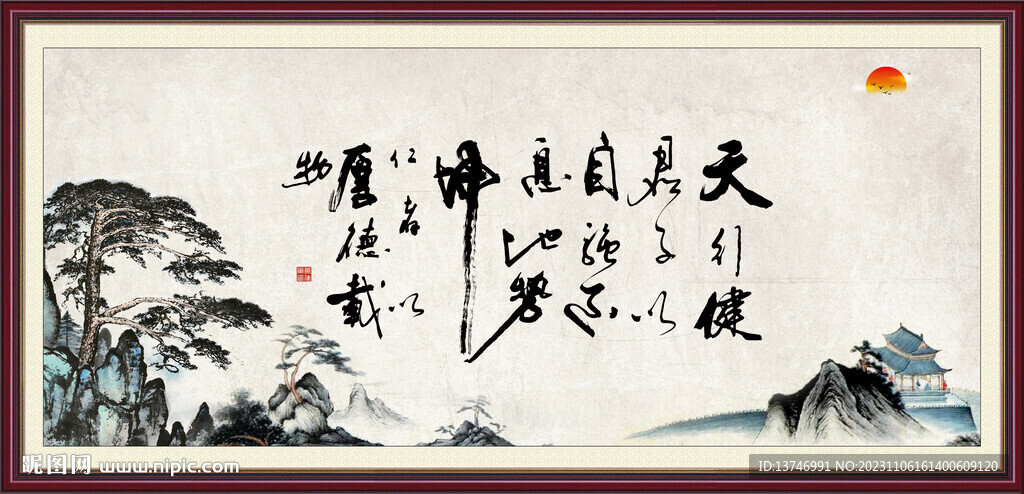 天行健
君子以
自强不
息地势
坤
仁者以
厚德載
物
昵图网 www.nipic.com
ID:13746991 NO:20231106161400609120